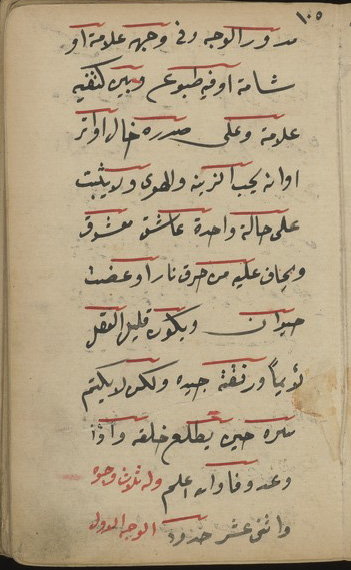 ١٠٥
مدور الوجه وفي وجهه علامة او
شامة او فيه طبوعم وبين كتفيه
علامة وعلى صدره خال او اثر
او انه يحب الزينه والهوى ولا يثبت
على حالة واحدة عاشق معشوق
ويخاف عليه من حرق نار او عضت
حيوان ويكون قليل العقل
لأيماً ورفقته جيده ولكن لا يكتم
سره حين يطلع خلقه واذا
وعد وفا والله اعلم وله ثلاث وجوه
واثنى عشر حدود الوجه الاول